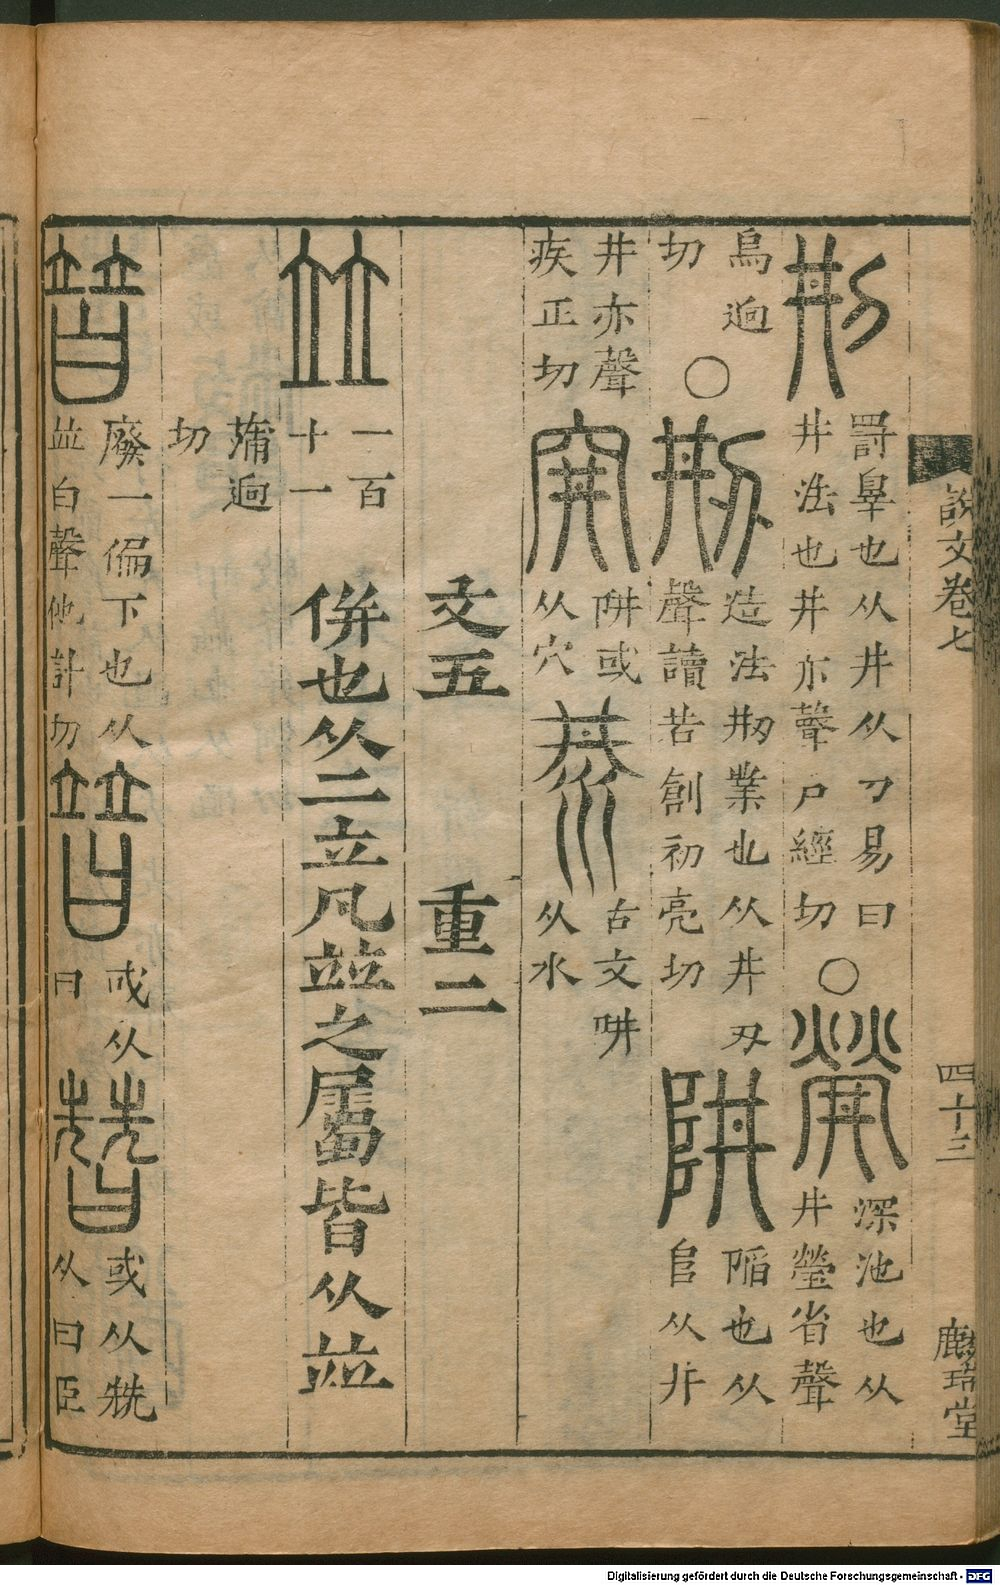 說文卷七
四十三
刑
罰辠也从井从刀易曰
井法也井亦聲户經切
○
𤇾
深池也从
井瑩省聲
烏迥
切
○
刱
造法刱業也从井刅
聲讀若創初亮切
阱
陷也从
𨸏从井
井亦聲
疾正切
穽
阱或
从穴
汬
古文阱
从水
文五 重二
竝
一百
十一
併也从二立凡竝之屬皆从竝
蒲迥
切
暜
廢一偏下也从
竝白聲他計切
或从
曰
或从兟
从曰臣
Digitalisierung gefördert durch die Deutsche Forschungsgemeinschaft - DFG